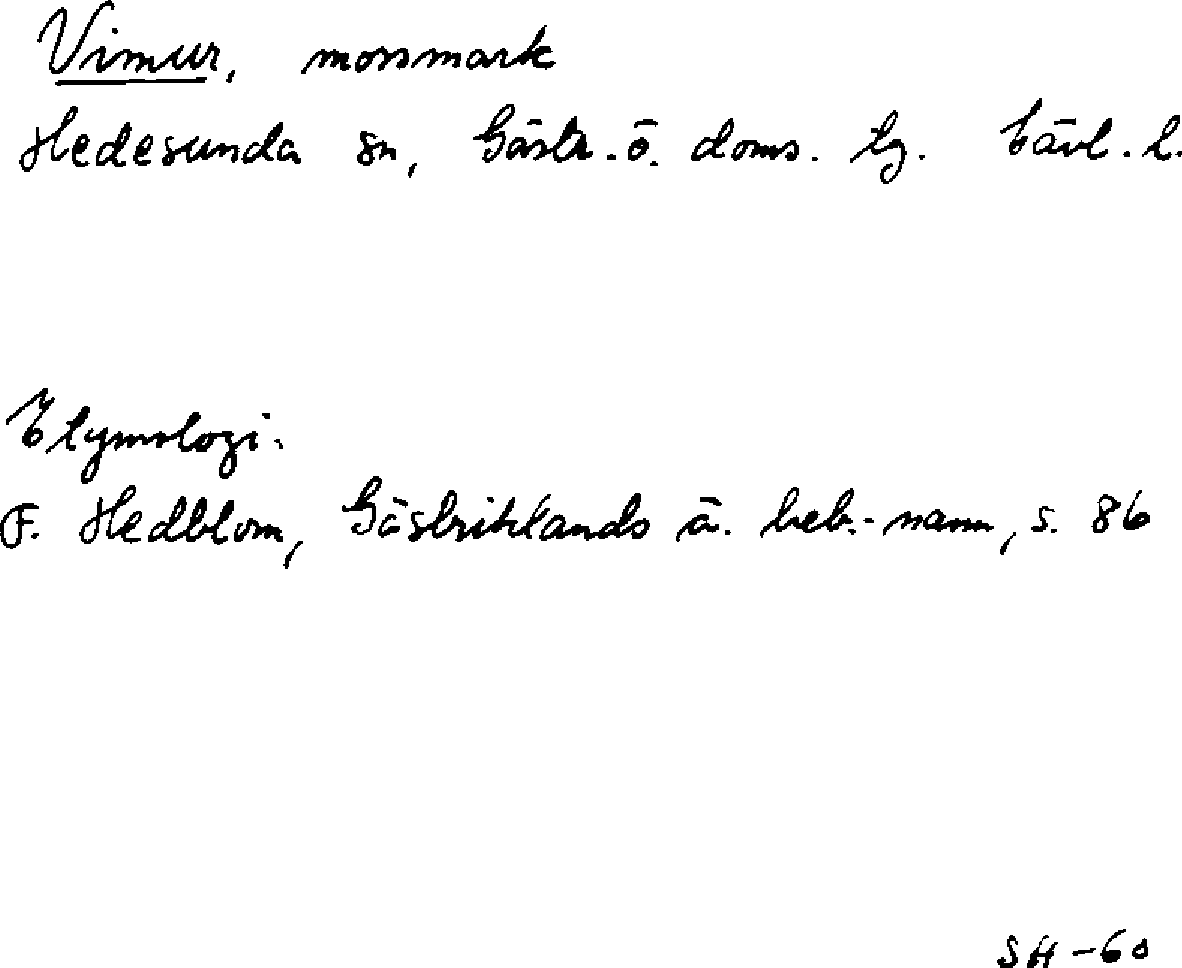 Vimur, mossmark
Hedesunda sn, Gästr. ö. doms. tg. Gävl. l.
Etymologi.
F. Hedblom, Gästriklands ä. beb.-namn, s. 86
SH-60